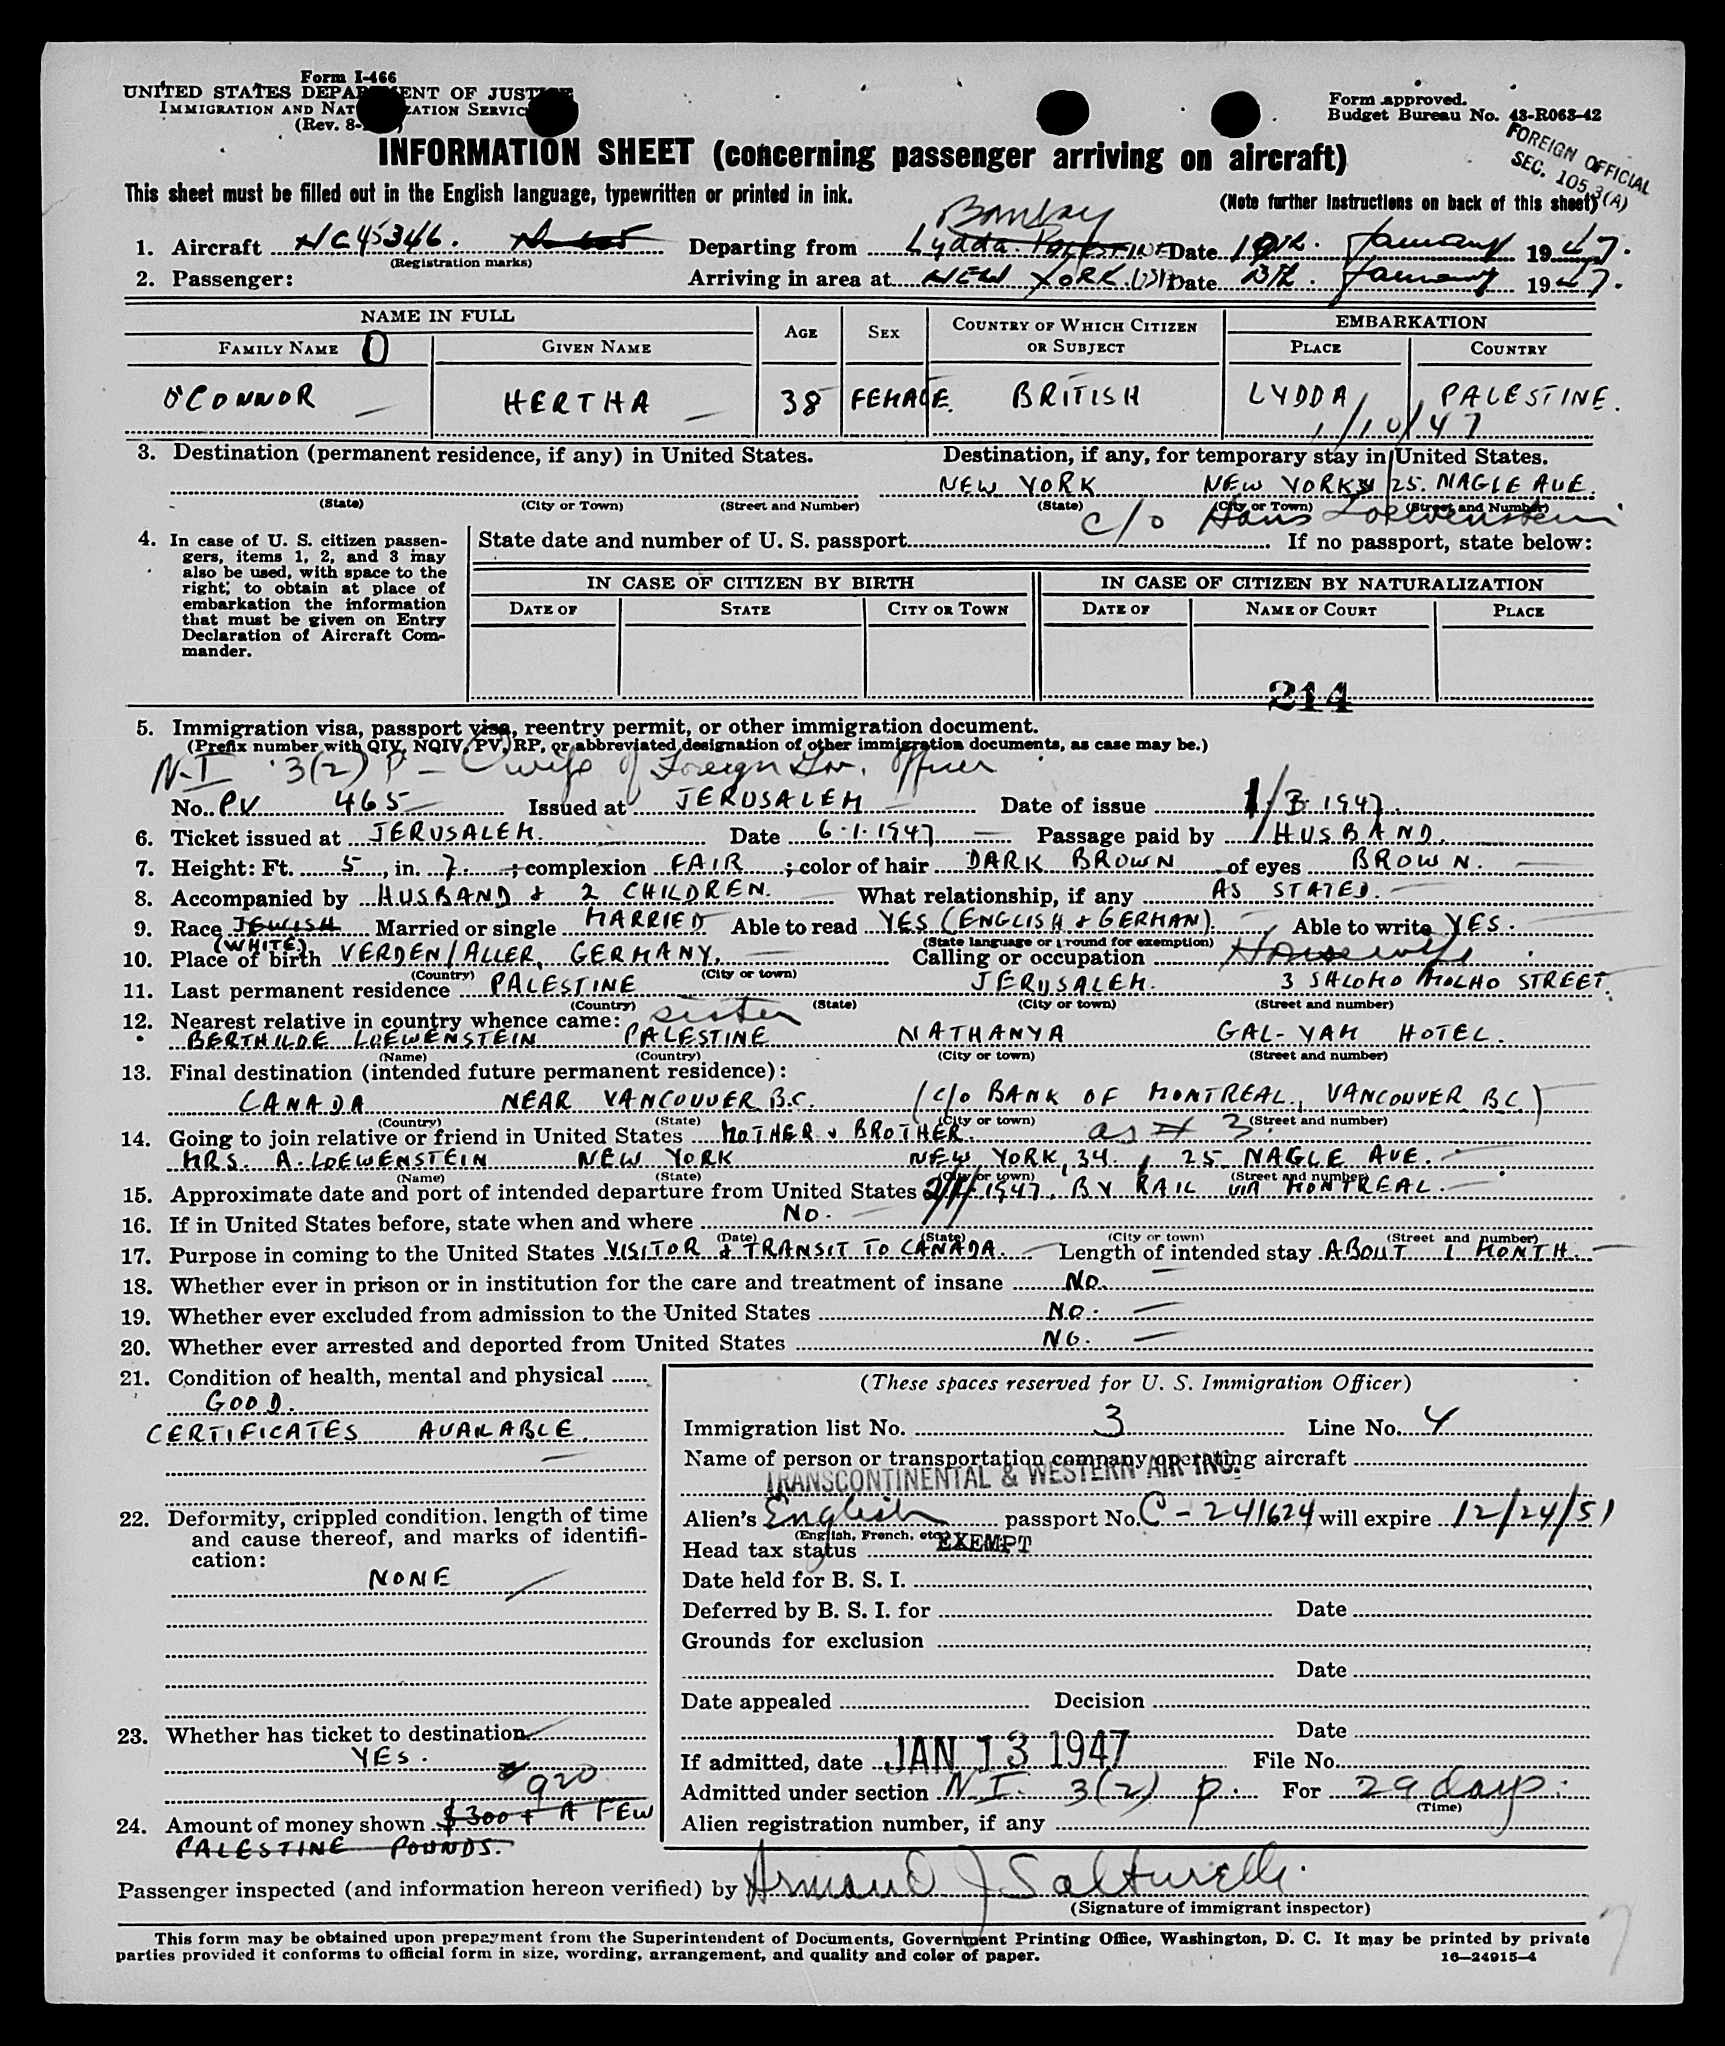 Form I-466
UNITED STATES DEPARTMENT OF JUSTICE
IMMIGRATION AND NATURALIZATION SERVICE
(Rev. 8-
Form approved.
Budget Bureau No. 43-R063-42
FOREIGN OFFICIAL
SEC. 105.3(A)
INFORMATION SHEET (concerning passenger arriving on aircraft)
This sheet must be filled out in the English language, typewritten or printed in ink.
(Note further instructions on back of this sheet)
Bombay
1. Aircraft NC45346. Departing from Lydda. PALESTINE Date 10th. January 1947.
(Registration marks)
2. Passenger: Arriving in area at NEW YORK. USA Date 13th. January 1947.
NAME IN FULL AGE SEX COUNTRY OF WHICH CITIZEN OR SUBJECT EMBARKATION
FAMILY NAME O GIVEN NAME PLACE COUNTRY
O'CONNOR — HERTHA — 38 FEMALE. BRITISH LYDDA PALESTINE.
1/10/47
3. Destination (permanent residence, if any) in United States. Destination, if any, for temporary stay in United States.
NEW YORK NEW YORK 34 25. NAGLE AVE.
(State) (City or Town) (Street and Number) (State) (City or Town) (Street and Number)
c/o Hans Loewenstein
4. In case of U. S. citizen passen-
gers, items 1, 2, and 3 may
also be used, with space to the
right, to obtain at place of
embarkation the information
that must be given on Entry
Declaration of Aircraft Com-
mander.
State date and number of U. S. passport If no passport, state below:
IN CASE OF CITIZEN BY BIRTH IN CASE OF CITIZEN BY NATURALIZATION
DATE OF STATE CITY OR TOWN DATE OF NAME OF COURT PLACE
214
5. Immigration visa, passport visa, reentry permit, or other immigration document.
(Prefix number with QIV, NQIV, PV, RP, or abbreviated designation of other immigration documents, as case may be.)
N-I 3(2) P — wife of Foreign Gov. Officer
No. PV 465 — Issued at JERUSALEM Date of issue 1/3. 1947.
6. Ticket issued at JERUSALEM. Date 6.1.1947 — Passage paid by HUSBAND.
7. Height: Ft. 5, in. 7. ; complexion FAIR ; color of hair DARK BROWN of eyes BROWN. —
8. Accompanied by HUSBAND & 2 CHILDREN. What relationship, if any AS STATED.
9. Race JEWISH Married or single MARRIED Able to read YES (ENGLISH & GERMAN). Able to write YES.
(WHITE) (State language or ground for exemption)
10. Place of birth VERDEN/ALLER, GERMANY. Calling or occupation Housewife
(Country) (City or town)
11. Last permanent residence PALESTINE JERUSALEM. 3 SHLOMO MOLHO STREET.
(Country) (State) (City or town) (Street and number)
12. Nearest relative in country whence came: sister
BERTHILDE LOEWENSTEIN PALESTINE NATHANYA GAL-YAM HOTEL.
(Name) (Country) (City or town) (Street and number)
13. Final destination (intended future permanent residence):
CANADA NEAR VANCOUVER B.C. (C/O BANK OF MONTREAL, VANCOUVER B.C.)
(Country) (State) (City or town) (Street and number)
14. Going to join relative or friend in United States MOTHER & BROTHER. as # 3
MRS. A. LOEWENSTEIN NEW YORK NEW YORK, 34., 25. NAGLE AVE. —
(Name) (State) (City or town) (Street and number)
15. Approximate date and port of intended departure from United States 2/11 1947. BY RAIL VIA MONTREAL. —
16. If in United States before, state when and where NO. —
(Date) (State) (City or town) (Street and number)
17. Purpose in coming to the United States VISITOR & TRANSIT TO CANADA. Length of intended stay ABOUT 1 MONTH. —
18. Whether ever in prison or in institution for the care and treatment of insane NO. —
19. Whether ever excluded from admission to the United States NO. —
20. Whether ever arrested and deported from United States NO. —
21. Condition of health, mental and physical
GOOD.
CERTIFICATES AVAILABLE.
22. Deformity, crippled condition, length of time
and cause thereof, and marks of identifi-
cation:
NONE
23. Whether has ticket to destination
YES.
920
24. Amount of money shown $300 + A FEW
PALESTINE POUNDS.
(These spaces reserved for U. S. Immigration Officer)
Immigration list No. 3 Line No. 4
Name of person or transportation company operating aircraft
TRANSCONTINENTAL & WESTERN AIR INC.
Alien's English passport No. C-241624 will expire 12/24/51
(English, French, etc.)
Head tax status EXEMPT
Date held for B. S. I.
Deferred by B. S. I. for Date
Grounds for exclusion
Date
Date appealed Decision
Date
If admitted, date JAN 13 1947 File No.
Admitted under section N.I. 3(2) P. For 29 days.
(Time)
Alien registration number, if any
Passenger inspected (and information hereon verified) by Armand J Salturelli
(Signature of immigrant inspector)
This form may be obtained upon prepayment from the Superintendent of Documents, Government Printing Office, Washington, D. C. It may be printed by private
parties provided it conforms to official form in size, wording, arrangement, and quality and color of paper. 16—24915-4
7